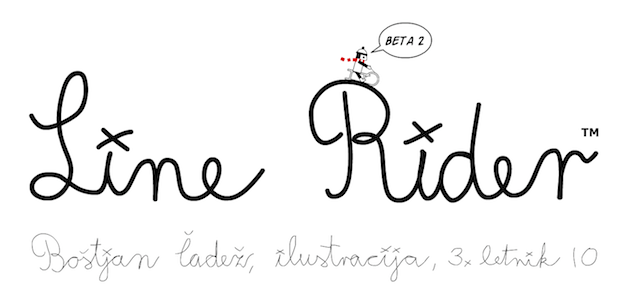 BETA 2
Line Rider™
Boštjan Čadež, ilustracija, 3. letnik 10